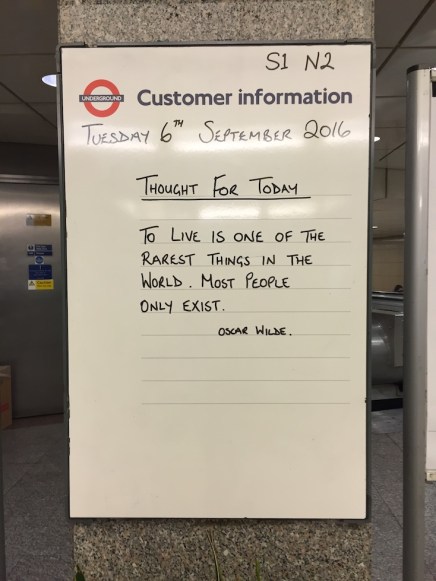 S1 N2
UNDERGROUND
Customer information
TUESDAY 6TH SEPTEMBER 2016
THOUGHT FOR TODAY
TO LIVE IS ONE OF THE
RAREST THINGS IN THE
WORLD. MOST PEOPLE
ONLY EXIST.
OSCAR WILDE.